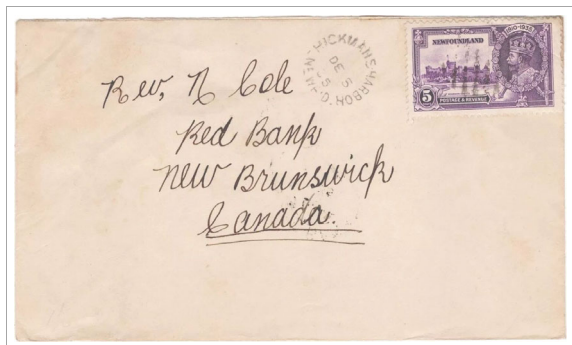 HICKMANS HARBOR
DE 5
NEWFOUNDLAND
1910-1935
5
POSTAGE & REVENUE
Rev, N Cole
Red Bank
New Brunswick
Canada